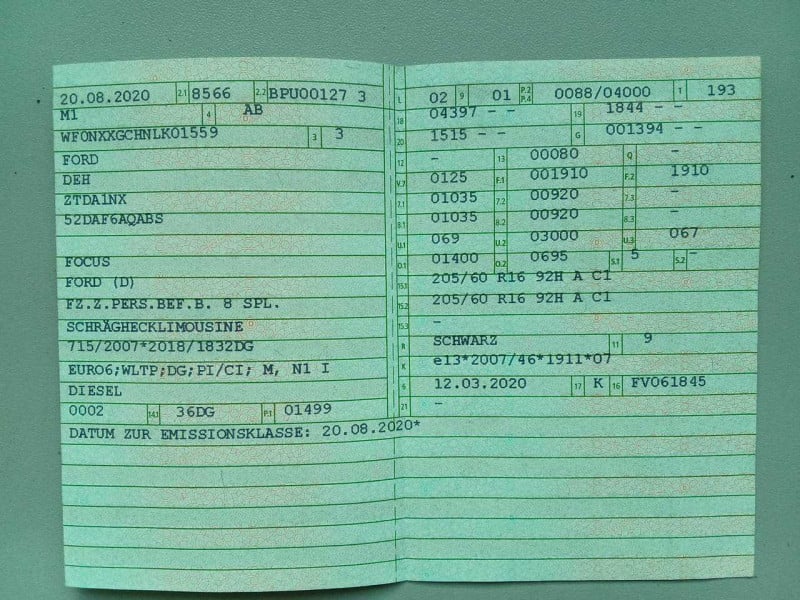 20.08.2020 2.1 8566 2.2 BPU00127 3
M1 4 AB
WF0NXXGCHNLK01559 3 3
FORD
DEH
ZTDA1NX
52DAF6AQABS
FOCUS
FORD (D)
FZ.Z.PERS.BEF.B. 8 SPL.
SCHRÄGHECKLIMOUSINE
715/2007*2018/1832DG
EURO6;WLTP;DG;PI/CI; M, N1 I
DIESEL
0002 14.1 36DG P.1 01499
DATUM ZUR EMISSIONSKLASSE: 20.08.2020*
L 02 9 01 P.2 P.4 0088/04000 T 193
18 04397 - - 19 1844 - -
20 1515 - - G 001394 - -
12 - 13 00080 Q -
V.7 0125 F.1 001910 F.2 1910
7.1 01035 7.2 00920 7.3 -
8.1 01035 8.2 00920 8.3 -
U.1 069 U.2 03000 U.3 067
O.1 01400 O.2 0695 S.1 5 S.2 -
15.1 205/60 R16 92H A C1
15.2 205/60 R16 92H A C1
15.3 -
R SCHWARZ 11 9
K e13*2007/46*1911*07
6 12.03.2020 17 K 16 FV061845
21 -